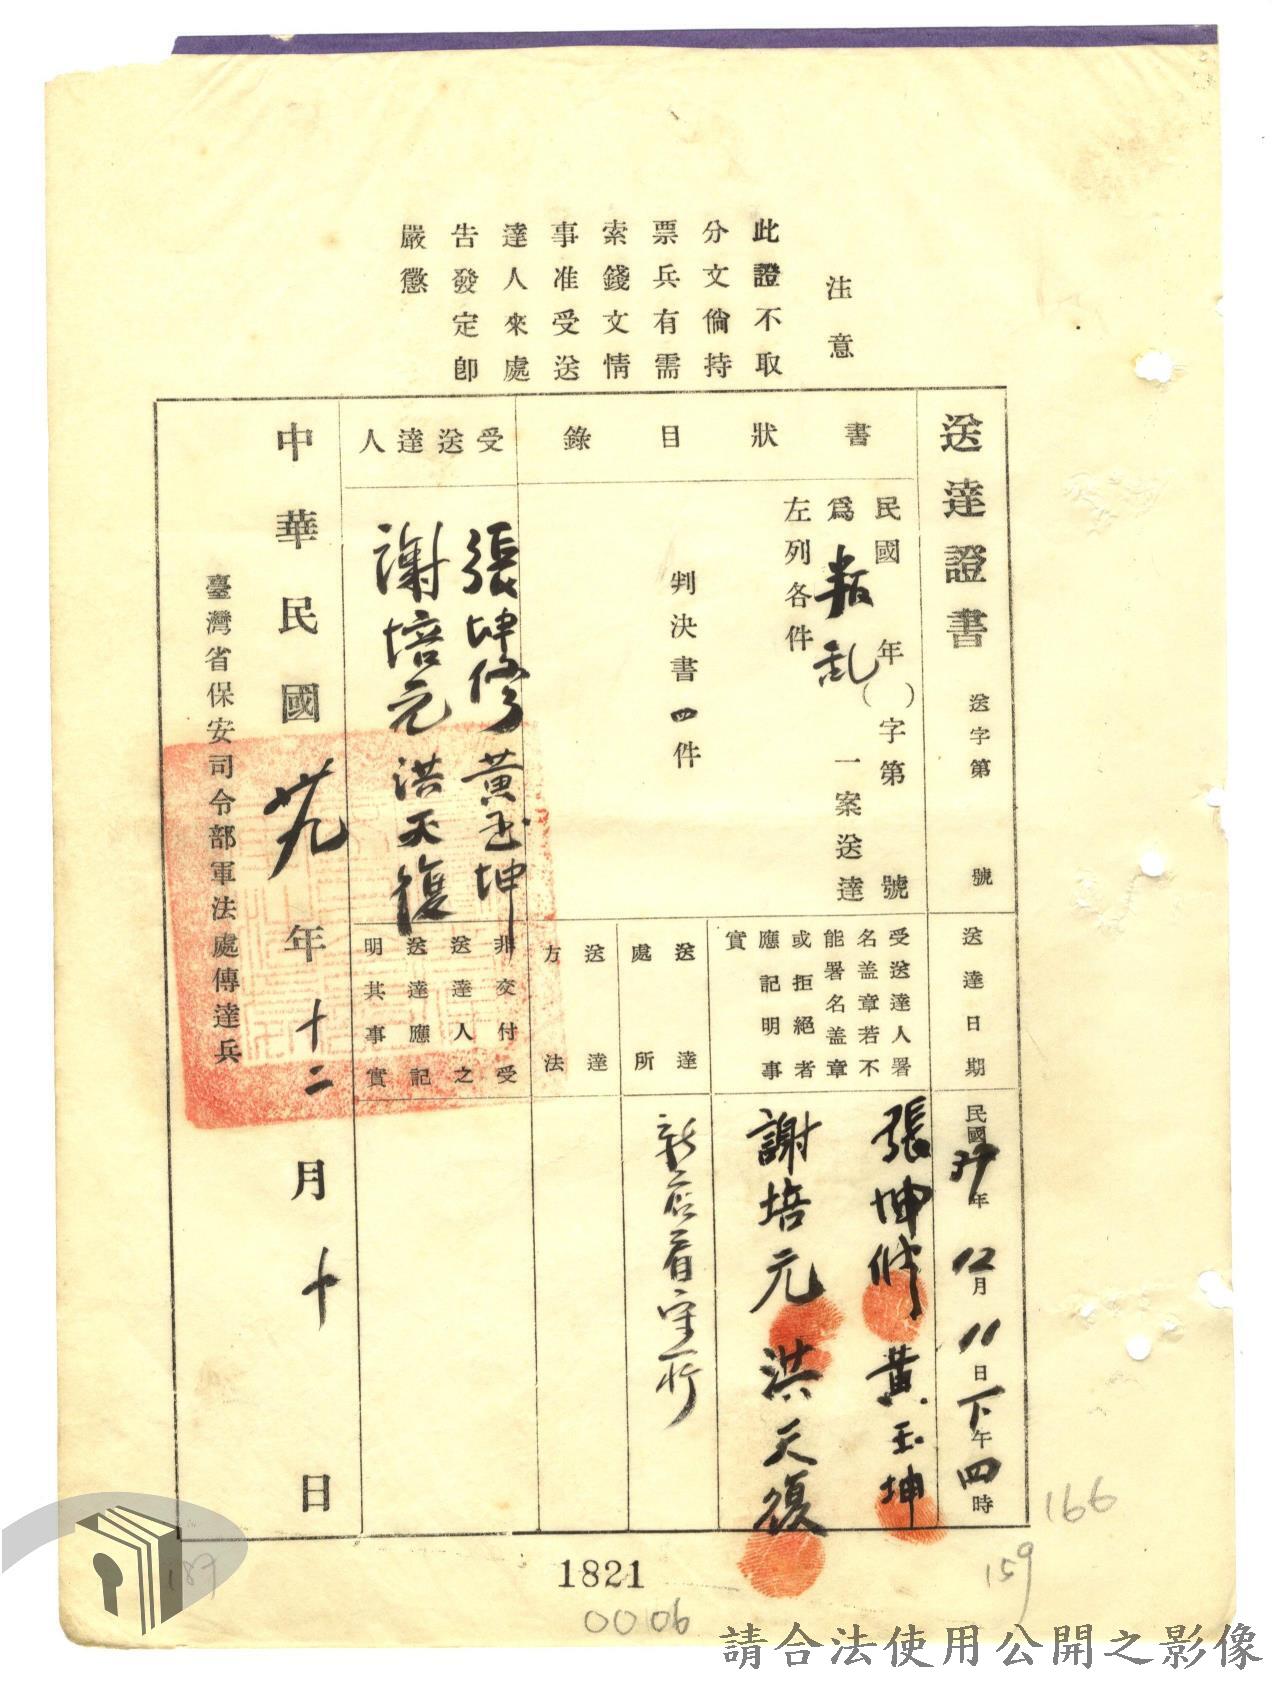 注意
此證不取
分文倘持
票兵有需
索錢文情
事准受送
達人來處
告發定卽
嚴懲
送達證書 送字第 號
書狀目錄
民國 年( )字第 號
爲叛乱一案送達
左列各件
判決書四件
受送達人
張坤修 黃玉坤
謝培元 洪天復
中華民國卅九年十二月十日
臺灣省保安司令部軍法處傳達兵
送達日期
民國39年12月11日下午四時
受送達人署
名盖章若不
能署名盖章
或拒絕者
應記明事
實
張坤修 黃玉坤
謝培元 洪天復
送達處所
新店看守所
送達方法
非交付受
送達人之
送達應記
明其事實
1821
0006
166
159
187
請合法使用公開之影像